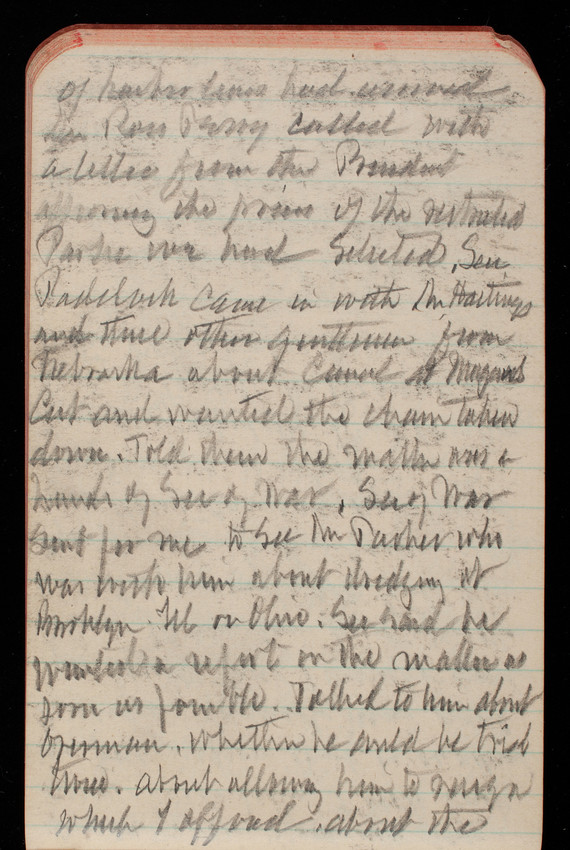 of harbor lines had arrived
Ross Perry called with
a letter from the President
approving the prices of the
Parke we had selected, Sen
Paddock came in with Mr Hastings
and three other gentlemen from
Nebraska about Canal at
Cut and wanted the chain taken
down. Told them the matter was
hands of Sec of War. Sec of War
sent for me to see Mr Parker who
was with him about dredging at
Brooklyn Ill on Ohio. Sec said he
wanted a report on the matter as
soon as possible. Talked to him about
Oberman. whether he could be tried
here. about allowing him to resign
which I opposed. about the